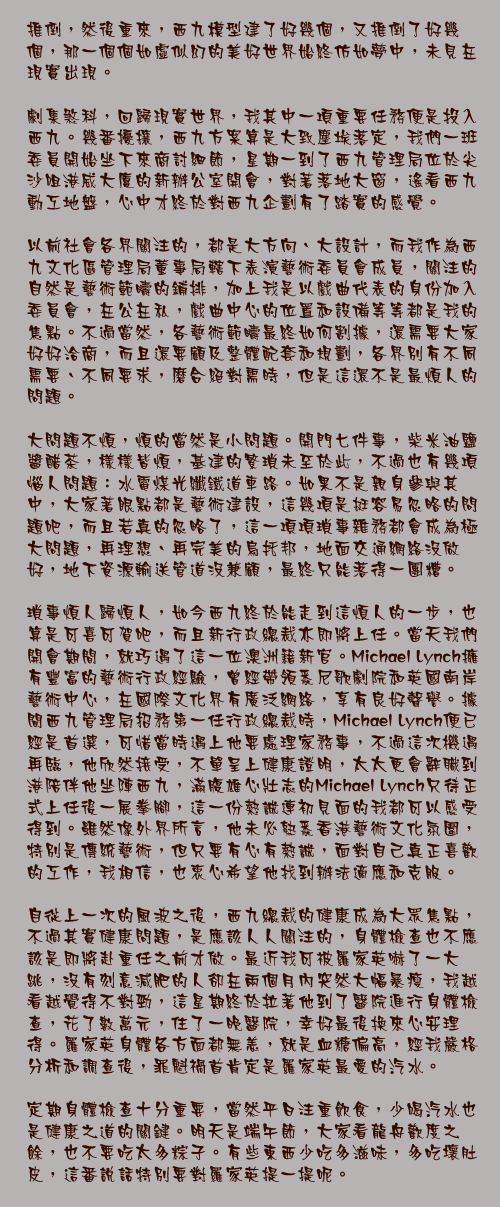 推倒，然後重來，西九模型建了好幾個，又推倒了好幾
個，那一個個如虛似幻的美好世界始終仿如夢中，未見在
現實出現。
劇集煞科，回歸現實世界，我其中一項重要任務便是投入
西九。幾番擾攘，西九方案算是大致塵埃落定，我們一班
委員開始坐下來商討細節，星期一到了西九管理局位於尖
沙咀港威大廈的新辦公室開會，對著落地大窗，遙看西九
動工地盤，心中才終於對西九企劃有了踏實的感覺。
以前社會各界關注的，都是大方向、大設計，而我作為西
九文化區管理局董事局轄下表演藝術委員會成員，關注的
自然是藝術範疇的鋪排，加上我是以戲曲代表的身份加入
委員會，在公在私，戲曲中心的位置和設備等等都是我的
焦點。不過當然，各藝術範疇最終如何劃據，還需要大家
好好洽商，而且還要顧及整體配套和規劃，各界別有不同
需要、不同要求，磨合絕對需時，但是這還不是最煩人的
問題。
大問題不煩，煩的當然是小問題。開門七件事，柴米油鹽
醬醋茶，樣樣皆煩，基建的繁瑣未至於此，不過也有幾項
惱人問題：水電煤光纖鐵道車路。如果不是親身參與其
中，大家著眼點都是藝術建設，這幾項是挺容易忽略的問
題吧，而且若真的忽略了，這一項項瑣事雜務都會成為極
大問題，再理想、再完美的烏托邦，地面交通網路沒做
好，地下資源輸送管道沒兼顧，最終只能落得一團糟。
瑣事煩人歸煩人，如今西九終於能走到這煩人的一步，也
算是可喜可賀吧，而且新行政總裁亦即將上任。當天我們
開會期間，就巧遇了這一位澳洲籍新官。Michael Lynch擁
有豐富的藝術行政經驗，曾經帶領悉尼歌劇院和英國南岸
藝術中心，在國際文化界有廣泛網路，享有良好聲譽。據
聞西九管理局招務第一任行政總裁時，Michael Lynch便已
經是首選，可惜當時遇上他要處理家務事，不過這次機遇
再臨，他欣然接受，不單呈上健康證明，太太更會辭職到
港陪伴他坐陣西九，滿腔雄心壯志的Michael Lynch只待正
式上任後一展拳腳，這一份熱誠連初見面的我都可以感受
得到。雖然像外界所言，他未必熟悉香港藝術文化氛圍，
特別是傳統藝術，但只要有心有熱誠，面對自己真正喜歡
的工作，我相信，也衷心希望他找到辦法適應和克服。
自從上一次的風波之後，西九總裁的健康成為大眾焦點，
不過其實健康問題，是應該人人關注的，身體檢查也不應
該是即將赴重任之前才做。最近我可被羅家英嚇了一大
跳，沒有刻意減肥的人卻在兩個月內突然大幅暴瘦，我越
看越覺得不對勁，這星期終於拉著他到了醫院進行身體檢
查，花了數萬元，住了一晚醫院，幸好最後換來心安理
得。羅家英身體各方面都無恙，就是血糖偏高，經我嚴格
分析和調查後，罪魁禍首肯定是羅家英最愛的汽水。
定期身體檢查十分重要，當然平日注重飲食，少喝汽水也
是健康之道的關鍵。明天是端午節，大家看龍舟歡度之
餘，也不要吃太多粽子。有些東西少吃多滋味，多吃壞肚
皮，這番說話特別要對羅家英提一提呢。